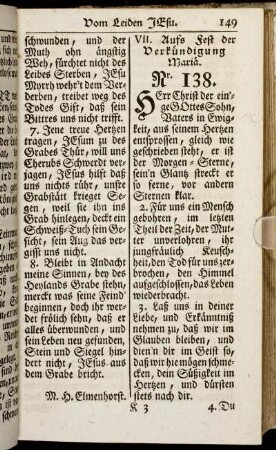 Vom Leiden JEsu. 149
schwunden, und der
Muth ohn ängstig
Weh, fürchtet nicht des
Leibes Sterben, JEsu
Myrrh wehr't dem Ver-
derben, treibet weg des
Todes Gift, daß sein
Bittres uns nicht trifft.
7. Jene treue Hertzen
tragen, JEsum zu des
Grabes Thür, will uns
Cherubs Schwerdt ver-
jagen, JEsus hilft daß
uns nichts rühr, unsre
Grabstätt krieget Se-
gen, weil sie ihn ins
Grab hinlegen, deckt ein
Schweiß-Tuch sein Ge-
sicht, sein Aug das ver-
gißt uns nicht.
8. Bleibt in Andacht
meine Sinnen, bey des
Heylands Grabe stehn,
mercket was seine Feind
beginnen, doch ihr wer-
det frölich sehn, daß er
alles überwunden, und
sein Leben neu gefunden,
Stein und Siegel hin-
dert nicht, JEsus aus
dem Grabe bricht.
M. H. Elmenhorst.
VII. Aufs Fest der
Verkündigung
Mariä.
Nr. 138.
HErr Christ der ein'-
ge GOttes Sohn,
Vaters in Ewig-
keit, aus seinem Hertzen
entsprossen, gleich wie
geschrieben steht, er ist
der Morgen-Sterne,
sein'n Glantz streckt er
so ferne, vor andern
Sternen klar.
2. Für uns ein Mensch
gebohren, im letzten
Theil der Zeit, der Mut-
ter unverlohren, ihr
jungfräulich Keusch-
heit, den Tod für uns zer-
brochen, den Himmel
aufgeschlossen, das Leben
wiederbracht.
3. Laß uns in deiner
Liebe, und Erkänntniß
nehmen zu, daß wir im
Glauben bleiben, und
dien'n dir im Geist so,
daß wir hie mögen schme-
cken, dein Süßigkeit im
Hertzen, und dürsten
stets nach dir.
K 3 4. Du